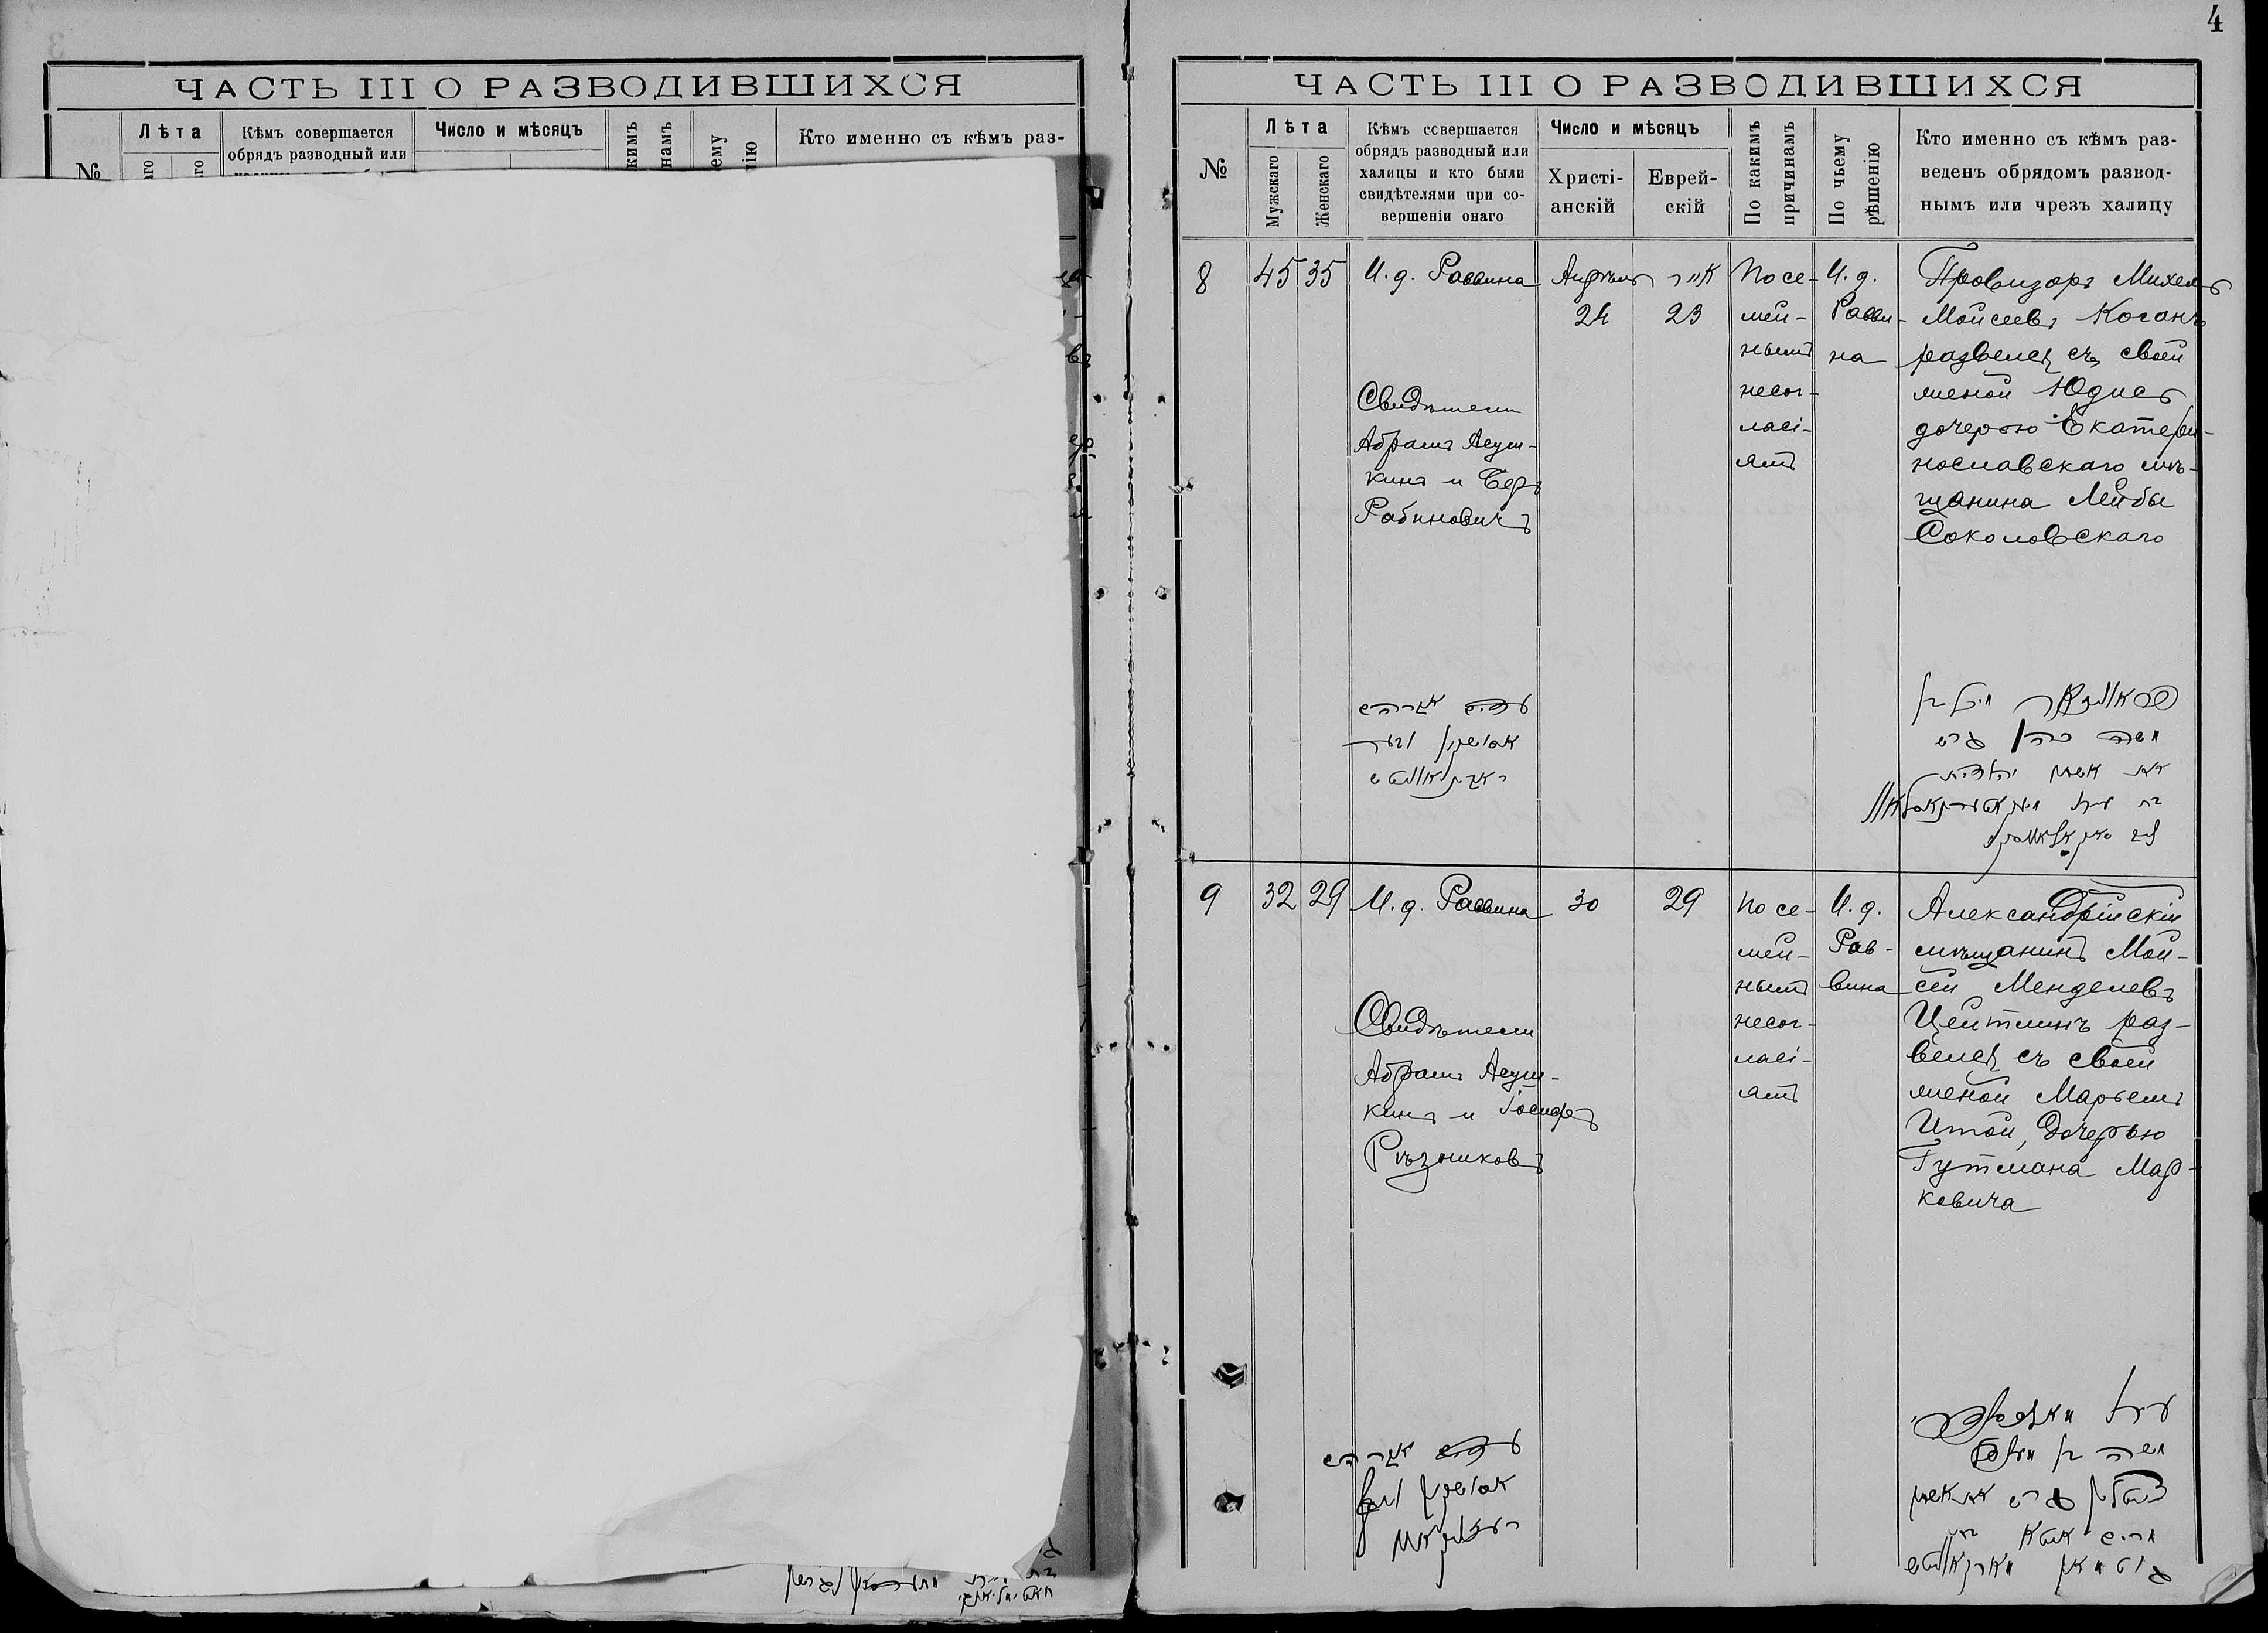 ЧАСТЬ III О РАЗВОДИВШИХСЯ
№
Лѣта
Кѣмъ совершается
обрядъ разводный или
Число и мѣсяцъ
Кто именно съ кѣмъ раз-
4
ЧАСТЬ III О РАЗВОДИВШИХСЯ
№
Лѣта
Мужскаго
Женскаго
Кѣмъ совершается
обрядъ разводный или
халицы и кто были
свидѣтелями при со-
вершеніи онаго
Число и мѣсяцъ
Христі-
анскій
Еврей-
скій
По какимъ
причинамъ
По чьему
рѣшенію
Кто именно съ кѣмъ раз-
веденъ обрядомъ развод-
нымъ или чрезъ халицу
8
45
35
И. д. Раввина
Свидѣтели
Абрамъ Асуш-
кинъ и Беръ
Рабиновичъ
Апрѣль
24
אייר
23
По се-
мей-
нымъ
несог-
ласі-
ямъ
И. д.
Равви-
на
Провизоръ Михель
Мойсеевъ Коганъ
развелся съ своей
женой Юдисъ
дочерью Екатери-
нославскаго мѣ-
щанина Лейбы
Соколовскаго
משה כהן גרש
את אשתו יהודית
9
32
29
И. д. Раввина
Свидѣтели
Абрамъ Асуш-
кинъ и Іосифъ
Рѣзниковъ
30
29
По се-
мей-
нымъ
несог-
ласі-
ямъ
И. д.
Рав-
вина
Александрійскій
мѣщанинъ Мой-
сей Менделевъ
Цейтлинъ раз-
велся съ своей
женой Марьемъ
Итой, дочерью
Гутмана Мар-
ковича